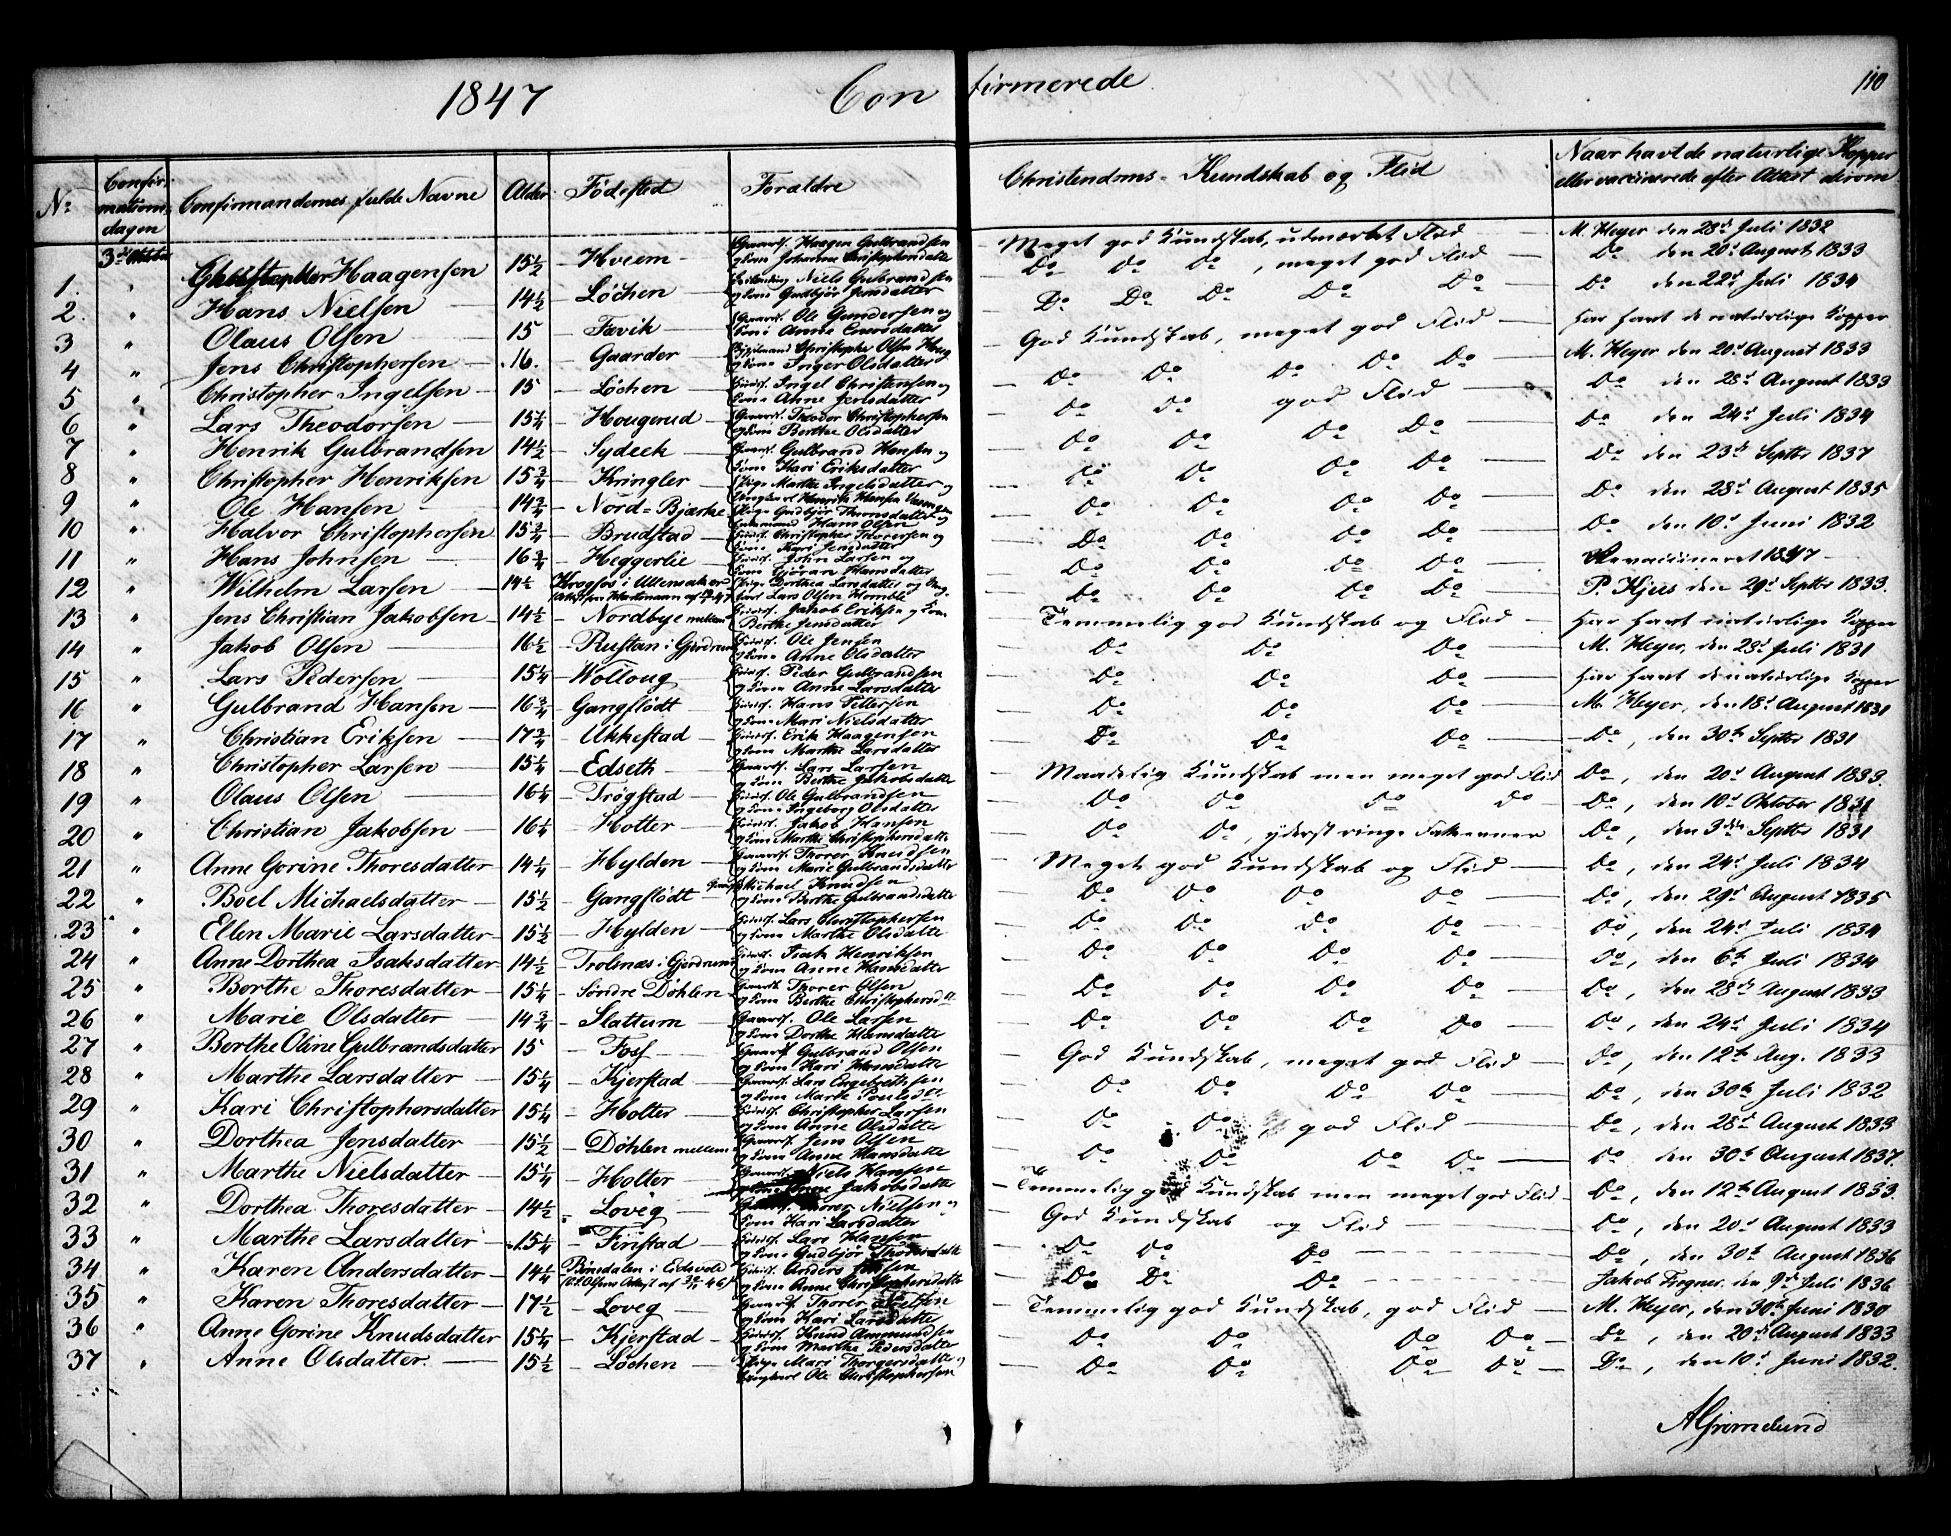 1847 Confirmerede 110
No Confirmationsdagen Confirmandernes fulde Navne Alder Födested Forældre Christendoms-Kundskab og Flid Naar havt de naturlige Kopper eller vaccinerede efter Attest derom
3d Oktbr
1. " Christopher Haagensen 15½ Hveem Gaardf. Haagen Gulbrandsen og Kone Johanne Christophersdatter Meget god Kundskab, udmærket Flid M. Heyer den 28d Juli 1832
2. " Hans Nielsen 14½ Löchen Niels Gulbrandsen og Kone Gudbjör Jensdatter Do Do Do, meget god Flid Do den 20d August 1833
3 " Olaus Olsen 15 Fævik Gaardf. Ole Gundersen og Kone Anne Do Do Do Do Do Do den 22d Juli 1834
4 " Jens Christophersen 16. Gaarder Christopher Olsen og Kone Inger Olsdatter God Kundskab, meget god Flid har havt de naturlige Kopper
5 " Christopher Ingelsen 15 Löchen Huusf. Ingel Christensen og Kone Anne Do Do Do Do Do M. Heyer den 20d August 1833
6 " Lars Theodorsen 15¼ Hougerud Gaardf. Theodor Christophersen og Kone Berthe Olsdatter Do Do god Flid Do den 28d August 1833
7 " Henrik Gulbrandsen 14½ Sydeek Gaardf. Gulbrand Hansen og Kone Kari Eriksdatter Do Do Do Do Do den 24d Juli 1834
8 " Christopher Henriksen 15¾ Kringler Pige Marthe Ingelsdatter og Ungkarl Henrik Hansen Do Do Do Do Do den 23de Septbr 1837
9 " Ole Hansen 14¾ Nord-Bjærke Pige Gudbjör og Hans Olsen Do Do Do Do Do den 28d August 1835
10 " Halvor Christophersen 15¾ Brudstad Huusf. Christopher og Kone Kari Jensdatter Do Do Do Do Do den 10d Juni 1832
11 " Hans Johnsen 16¾ Heggerlie Huusf. John Larsen og Kone Hansdatter Do Do Do Do Revaccineret 1847
12 " Wilhelm Larsen 14½ Krogfos i Ullensaker Pige Dorthea Larsdatter og Ungkarl Lars Olsen Do Do Do Do P. Kjus den 29d Septbr 1833.
13 " Jens Christian Jakobsen 14½ Nordbye mellem Huusf. Jakob Eriksen og Kone Berthe Jensdatter Temmelig god Kundskab og Flid har havt naturlige Kopper
14 " Jakob Olsen 16½ Rustan i Gjerdrum Huusf. Ole Jensen og Kone Anne Olsdatter Do Do Do M. Heyer, den 28d Juli 1831
15 " Lars Pedersen 15¼ Wolloug Huusf. Peder Gulbrandsen og Kone Anne Larsdatter Do Do Do har havt de naturlige Kopper
16 " Gulbrand Hansen 16¾ Gangflödt Huusf. Hans Pettersen og Kone Mari Nielsdatter Do Do Do M. Heyer, den 18d August 1831
17 " Christian Eriksen 17¾ Ukkestad Huusf. Erik Haagensen og Kone Marthe Larsdatter Do Do Do Do, den 30te Septbr 1831
18 " Christopher Larsen 15¼ Edseth Gaardf. Lars Larsen og Kone Berthe Jakobsdatter Maadelig Kundskab men meget god Flid Do, den 20d August 1833.
19 " Olaus Olsen 16¼ Trögstad Huusf. Ole Gulbrandsen og Kone Ingeborg Olsdatter Do Do Do Do Do, den 10d Oktober 1831
20 " Christian Jakobsen 16¼ Holter Huusf. Jakob Hansen og Kone Marthe Christophersdatter Do Do, yderst ringe Fatteevner Do, den 3die Septbr 1831
21 " Anne Gorine Thoresdatter 14¼ Hylden Gaardf. Thorer Knudsen og Kone Marie Gulbrandsdatter Meget god Kundskab og Flid Do, den 24d Juli 1834
22 " Boel Michaelsdatter 15½ Gangflödt Gaardf. Michael Knudsen og Kone Berthe Gulbrandsdatter Do Do Do Do Do, den 29d August 1835
23 " Ellen Marie Larsdatter 15½ Hylden Huusf. Lars Christophersen og Kone Marthe Olsdatter Do Do Do Do Do, den 24d Juli 1834
24 " Anne Dorthea Isaksdatter 14½ Trolsnæs i Gjerdrum Huusf. Isak Henriksen og Kone Anne Hansdatter Do Do Do Do Do, den 6te Juli 1834
25 " Berthe Thoresdatter 15¼ Söndre Döhlen Gaardf. Thorer Olsen og Kone Berthe Christophersdtr Do Do Do Do Do, den 28de August 1833
26 " Marie Olsdatter 14¾ Slattum Gaardf. Ole Larsen og Kone Dorthe Hansdatter Do Do Do Do Do, den 24d Juli 1834
27 " Berthe Oline Gulbrandsdatter 15 Foss Gaardf. Gulbrand Olsen og Kone Kari Hansdatter God Kundskab, meget god Flid Do, den 12te Aug. 1833
28 " Marthe Larsdatter 15¼ Kjerstad Gaardf. Lars Engebretsen og Kone Marte Poulsdtr Do Do Do Do Do, den 30te Juli 1832
29 " Kari Christophersdatter 15¼ Holter Huusf. Christopher Larsen og Kone Anne Olsdatter Do Do god Flid Do, den 28d August 1833
30 " Dorthea Jensdatter 15½ Döhlen mellem Gaardf. Jens Olsen og Kone Anne Hansdatter Do Do Do Do Do, den 30te August 1837.
31 " Marthe Nielsdatter 15¼ Holter Niels Hansen og Kone Jakobsdatter Temmelig god Kundskab men meget god Flid Do, den 12te August 1833.
32 " Dorthea Thoresdatter 14½ Loveg Thorer Nielsen og Kone Kari Larsdatter God Kundskab og Flid Do, den 20d August 1833
33 " Marthe Larsdatter 15¼ Finstad Huusf. Lars Hansen og Kone Gudbjör Do Do Do Do, den 30te August 1836
34 " Karen Andersdatter 14¼ i Eidsvold Huusf. Anders og Kone Anne Christophersdatter Do Do Do Jakob Trogner, den 9d Juli 1836
35 " Karen Thoresdatter 17½ Loveg Gaardf. Thorer Nielsen og Kone Kari Larsdatter Temmelig god Kundskab, god Flid M. Heyer, den 30te Juni 1830
36 " Anne Gorine Knudsdatter 15¼ Kjerstad Huusf. Knud Ammundsen og Kone Marthe Pedersdatter Do Do Do Do Do, den 20de August 1833
37 " Anne Olsdatter. 15½ Löchen Pige Mari Thorgersdatter og Ungkarl Ole Christophersen Do Do Do Do Do, den 10d Juni 1832.
AGrømelund